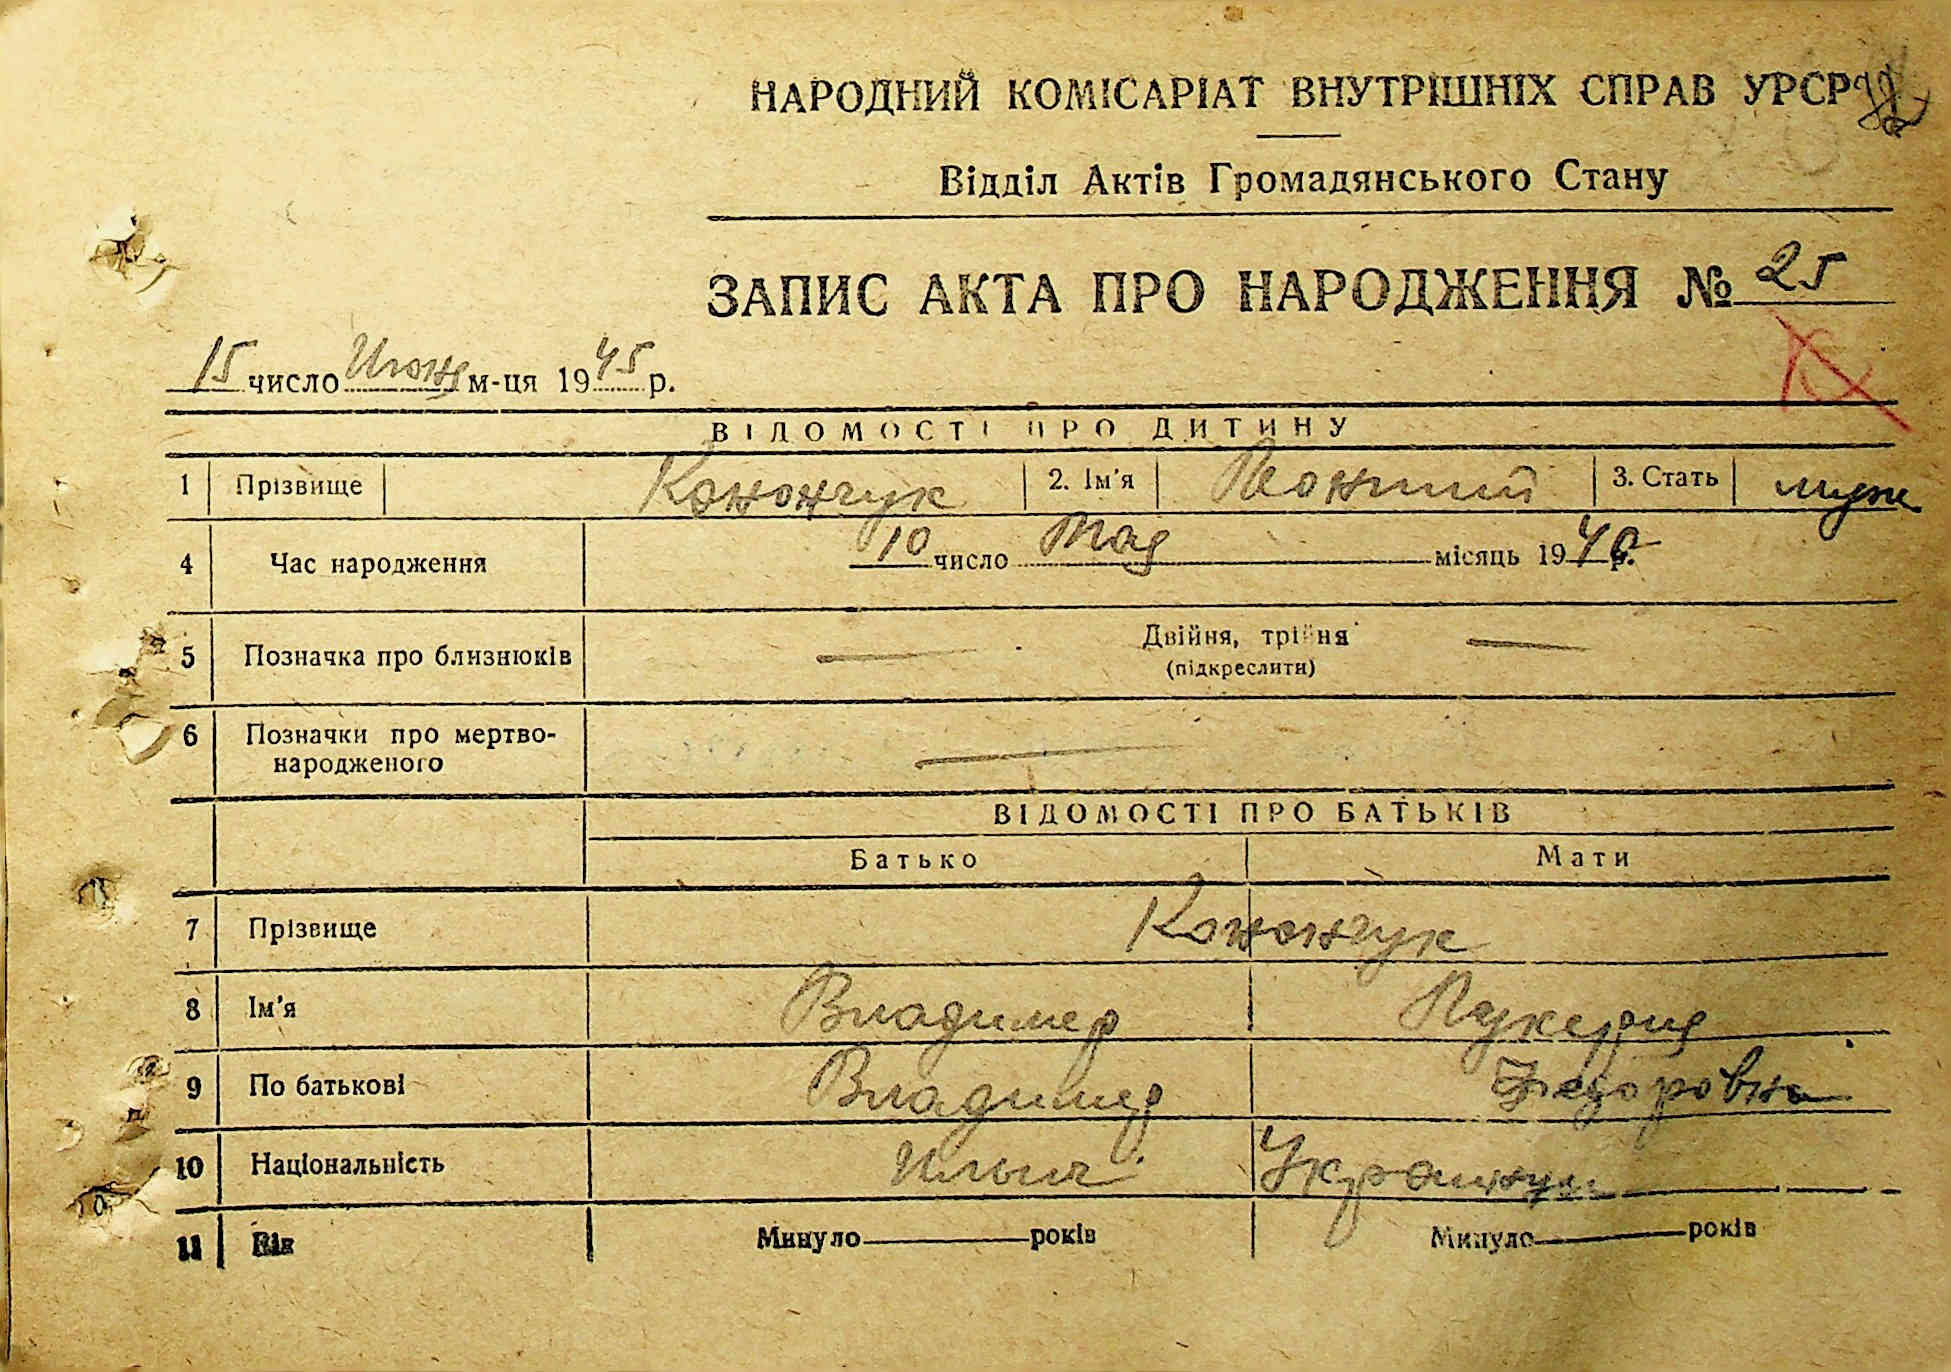 НАРОДНИЙ КОМІСАРІАТ ВНУТРІШНІХ СПРАВ УРСР
Відділ Актів Громадянського Стану
ЗАПИС АКТА ПРО НАРОДЖЕННЯ № 25
15 число Июня м-ця 1945 р.
ВІДОМОСТІ ПРО ДИТИНУ
1 Прізвище Конончук 2. Ім'я Леонтий 3. Стать муж
4 Час народження 10 число Мая місяць 1940 р.
5 Позначка про близнюків — Двійня, трійня —
(підкреслити)
6 Позначки про мертво-
народженого —
ВІДОМОСТІ ПРО БАТЬКІВ
Батько Мати
7 Прізвище Конончук
8 Ім'я Владимер Лукерия
9 По батькові Владимер Федоровна
10 Національність Ильич Украинци
11 Вік Минуло років Минуло років